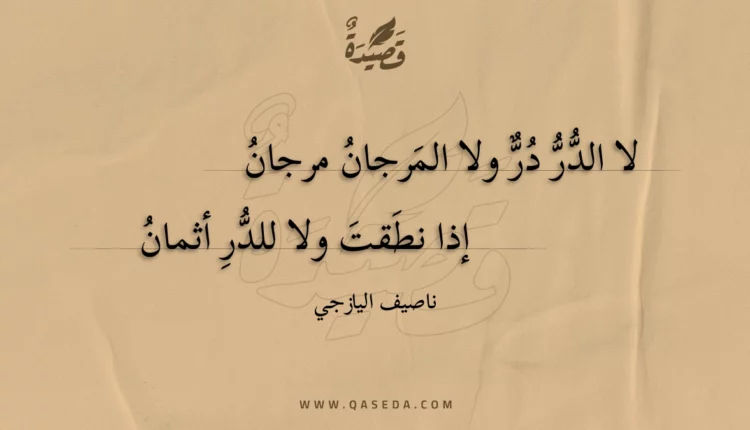 قَصِيدَةٌ
لا الدُّرُّ دُرٌّ ولا المَرجانُ مرجانُ
إذا نطَقتَ ولا للدُّرِ أثمانُ
ناصيف اليازجي
WWW.QASEDA.COM